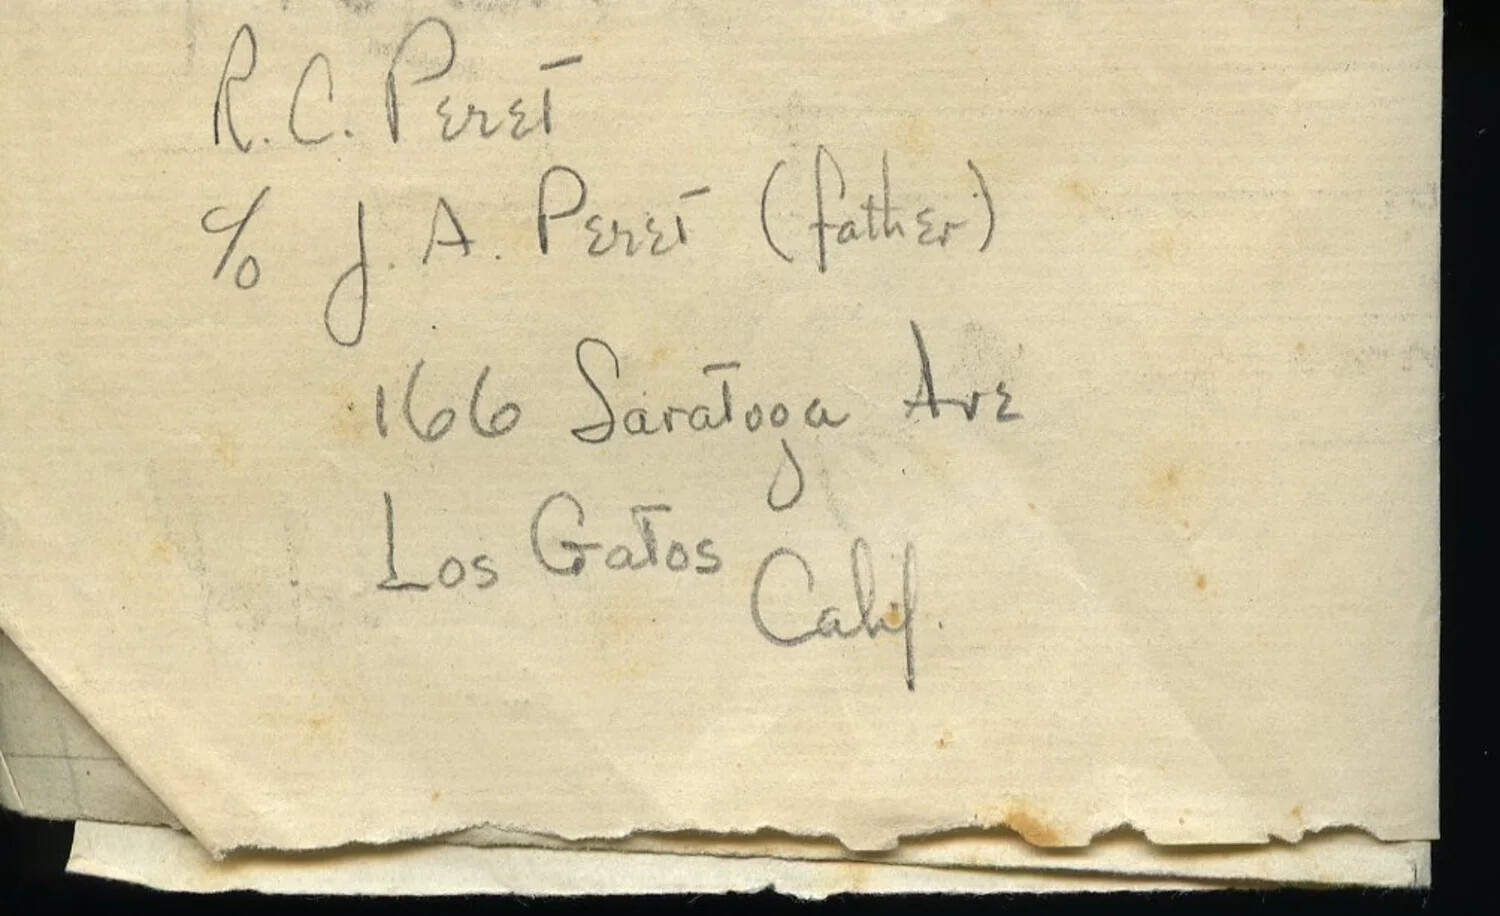 R. C. Peret
% J. A. Peret (father)
166 Saratoga Ave
Los Gatos
Calif.